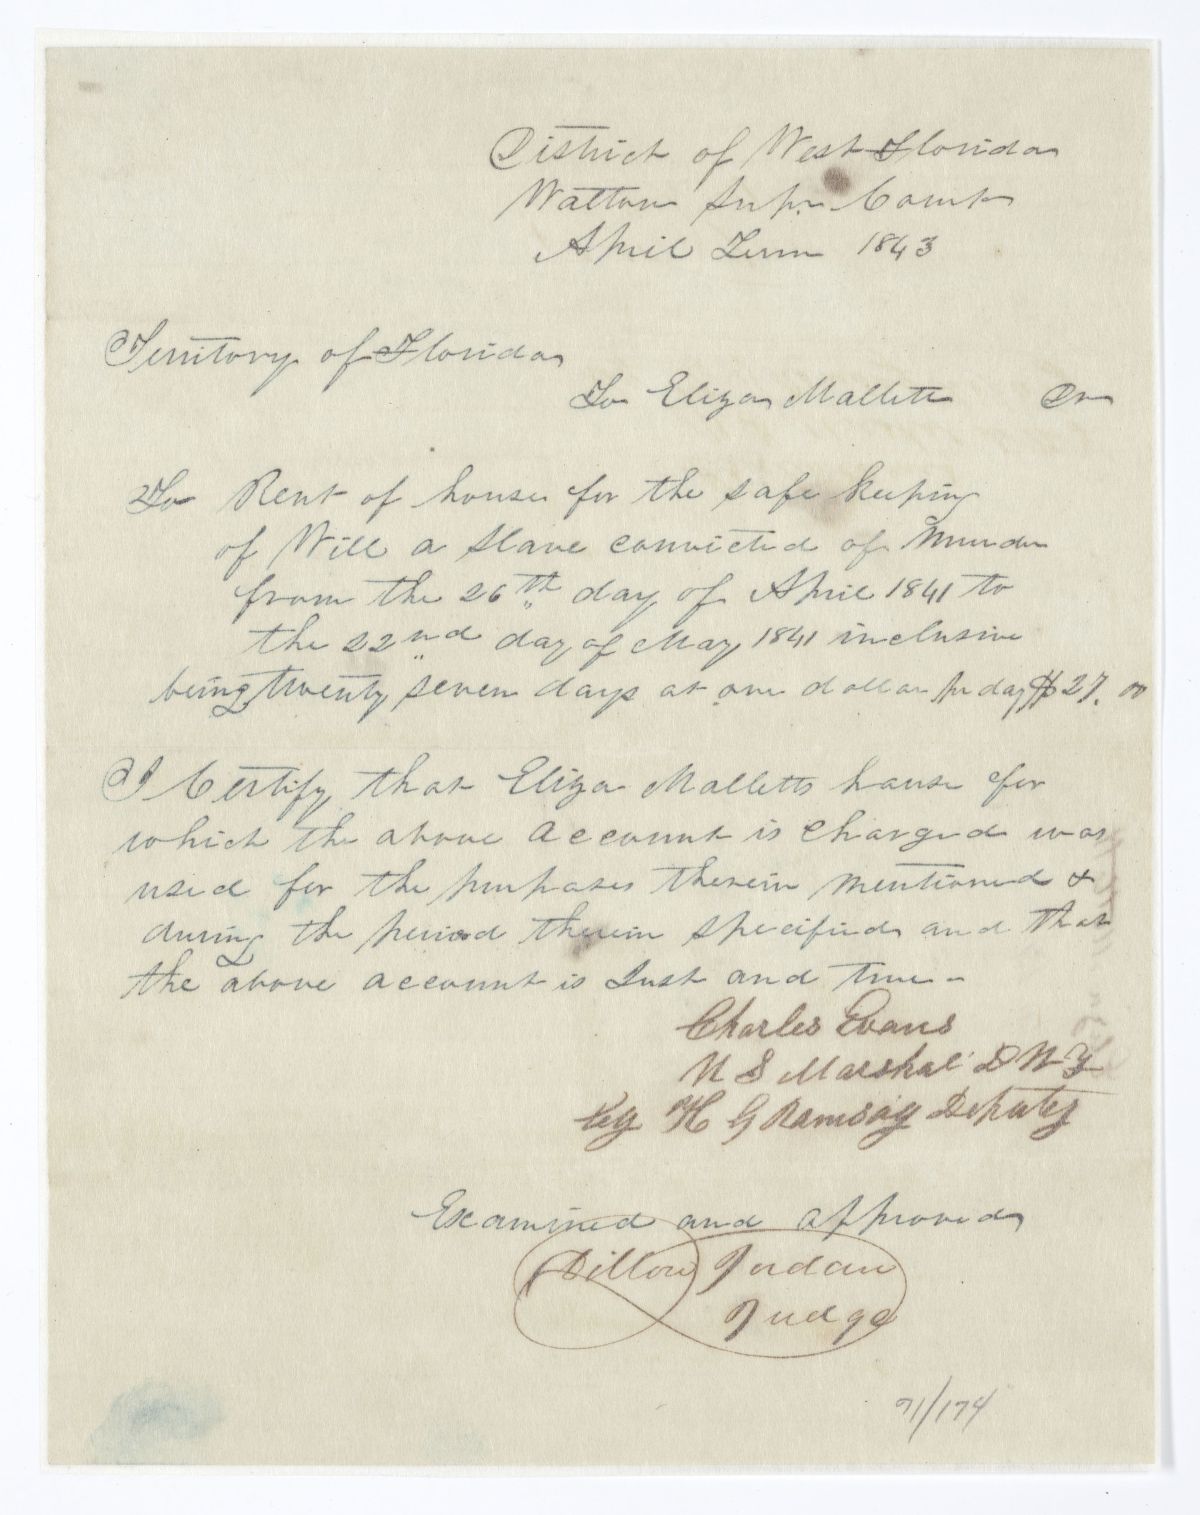 District of West Florida
Walton Supr. Court
April Term 1843
Territory of Florida
To Eliza Mallett Dr
To Rent of house for the safe keeping
of Will a Slave convicted of Murder
from the 26th day of April 1841 to
the 22nd day of May 1841 inclusive
being twenty seven days at one dollar pr day $27.00
I Certify that Eliza Malletts house for
which the above account is charged was
used for the purposes therein mentioned &
during the period therein specified and that
the above account is Just and true -
Charles Evans
U S Marshal D W F
by H G Ramsay Deputy
Examined and approved
Dillon Jordan
Judge
71/174